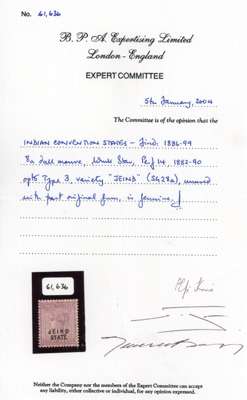 No. 61,636
B. P. A. Expertising Limited
London - England
EXPERT COMMITTEE
5th January, 2004
The Committee is of the opinion that the
INDIAN CONVENTION STATES - Jind: 1886-99
8a dull mauve, Wmk Star, Perf 14, 1882-90
opts Type 3, variety "JEIND" (SG28a), unused
with part original gum, is genuine
61,636
JEIND
STATE
Neither the Company nor the members of the Expert Committee can accept
any liability, either collective or individual, for any opinion expressed.